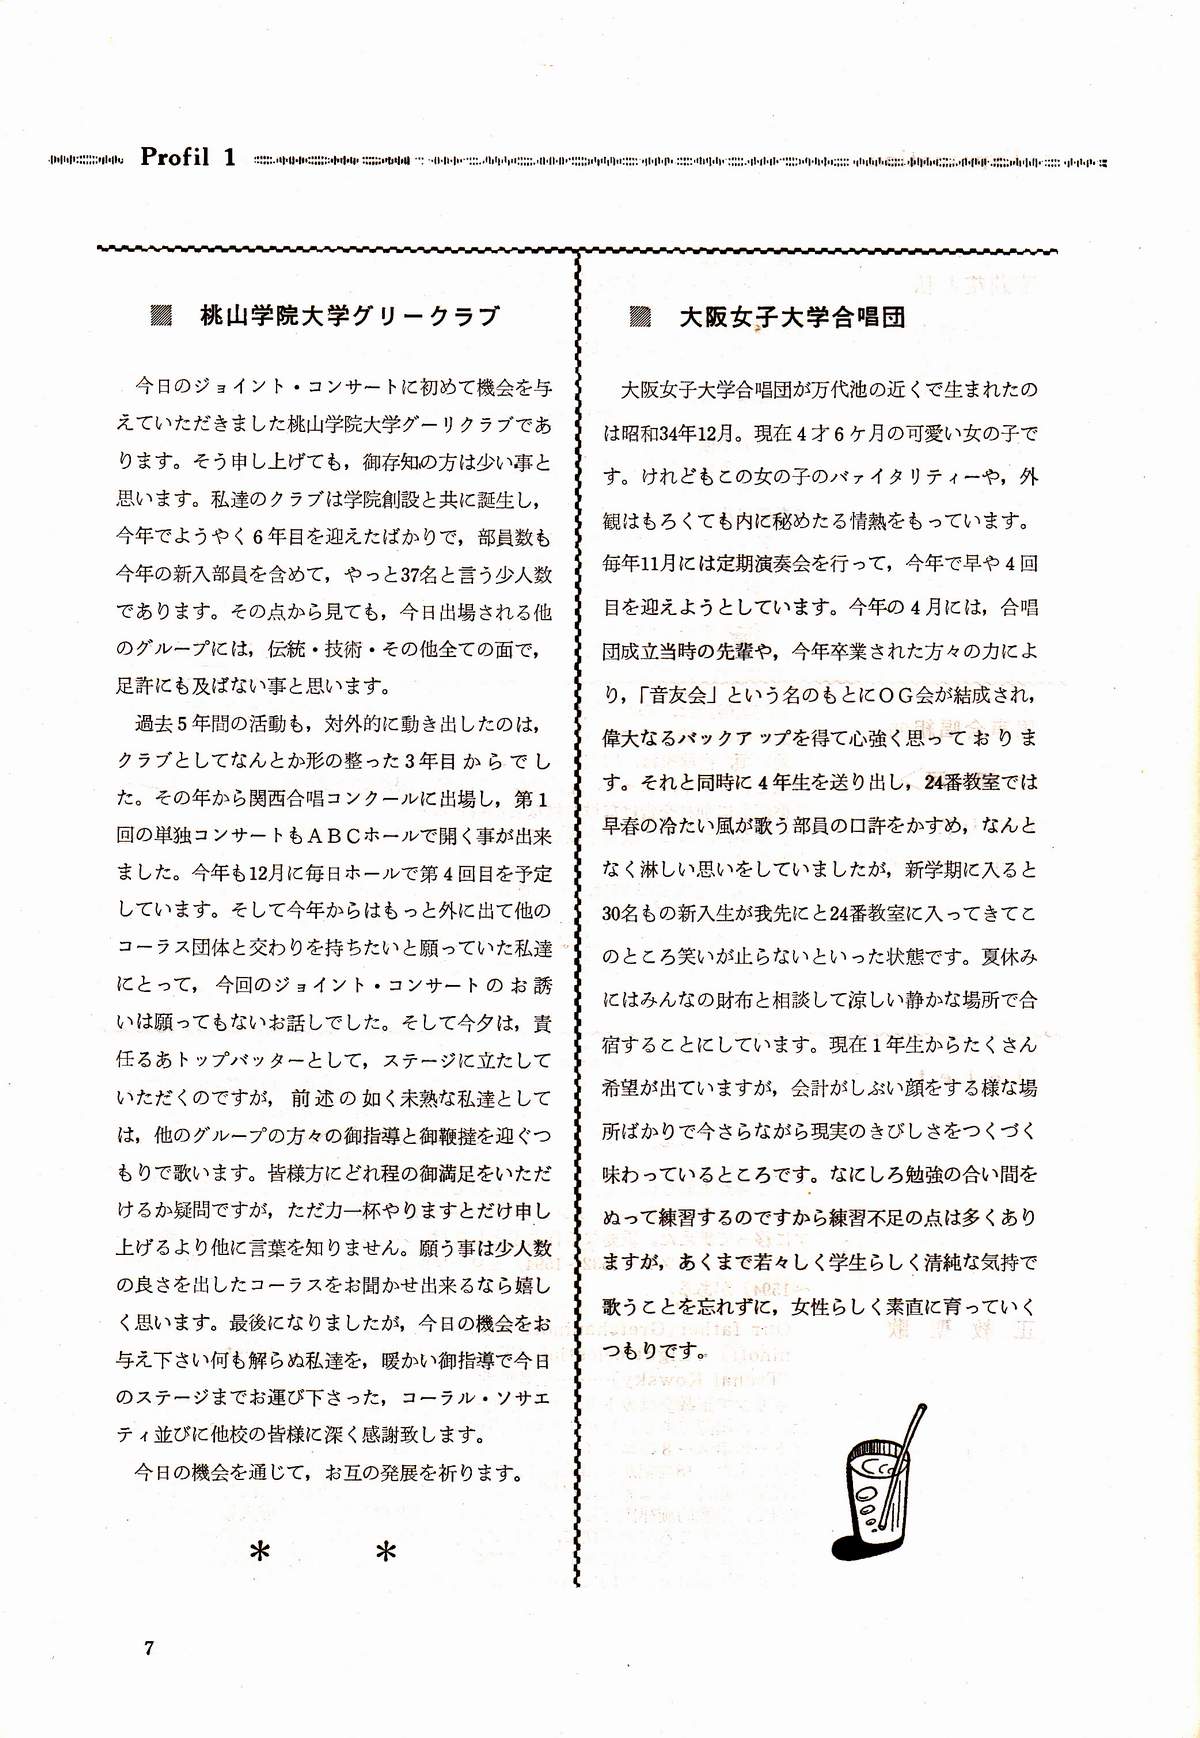 Profil 1
桃山学院大学グリークラブ
今日のジョイント・コンサートに初めて機会を与
えていただきました桃山学院大学グーリクラブであ
ります。そう申し上げても，御存知の方は少い事と
思います。私達のクラブは学院創設と共に誕生し，
今年でようやく6年目を迎えたばかりで，部員数も
今年の新入部員を含めて，やっと37名と言う少人数
であります。その点から見ても，今日出場される他
のグループには，伝統・技術・その他全ての面で，
足許にも及ばない事と思います。
過去5年間の活動も，対外的に動き出したのは，
クラブとしてなんとか形の整った3年目からでし
た。その年から関西合唱コンクールに出場し，第1
回の単独コンサートもＡＢＣホールで開く事が出来
ました。今年も12月に毎日ホールで第4回目を予定
しています。そして今年からはもっと外に出て他の
コーラス団体と交わりを持ちたいと願っていた私達
にとって，今回のジョイント・コンサートのお誘
いは願ってもないお話しでした。そして今夕は，責
任るあトップバッターとして，ステージに立たして
いただくのですが，前述の如く未熟な私達として
は，他のグループの方々の御指導と御鞭撻を迎ぐつ
もりで歌います。皆様方にどれ程の御満足をいただ
けるか疑問ですが，ただ力一杯やりますとだけ申し
上げるより他に言葉を知りません。願う事は少人数
の良さを出したコーラスをお聞かせ出来るなら嬉し
く思います。最後になりましたが，今日の機会をお
与え下さい何も解らぬ私達を，暖かい御指導で今日
のステージまでお運び下さった，コーラル・ソサエ
ティ並びに他校の皆様に深く感謝致します。
今日の機会を通じて，お互の発展を祈ります。
＊　＊
大阪女子大学合唱団
大阪女子大学合唱団が万代池の近くで生まれたの
は昭和34年12月。現在4才6ケ月の可愛い女の子で
す。けれどもこの女の子のバァイタリティーや，外
観はもろくても内に秘めたる情熱をもっています。
毎年11月には定期演奏会を行って，今年で早や4回
目を迎えようとしています。今年の4月には，合唱
団成立当時の先輩や，今年卒業された方々の力によ
り，「音友会」という名のもとにＯＧ会が結成され，
偉大なるバックアップを得て心強く思っておりま
す。それと同時に4年生を送り出し，24番教室では
早春の冷たい風が歌う部員の口許をかすめ，なんと
なく淋しい思いをしていましたが，新学期に入ると
30名もの新入生が我先にと24番教室に入ってきてこ
のところ笑いが止らないといった状態です。夏休み
にはみんなの財布と相談して涼しい静かな場所で合
宿することにしています。現在1年生からたくさん
希望が出ていますが，会計がしぶい顔をする様な場
所ばかりで今さらながら現実のきびしさをつくづく
味わっているところです。なにしろ勉強の合い間を
ぬって練習するのですから練習不足の点は多くあり
ますが，あくまで若々しく学生らしく清純な気持で
歌うことを忘れずに，女性らしく素直に育っていく
つもりです。
7